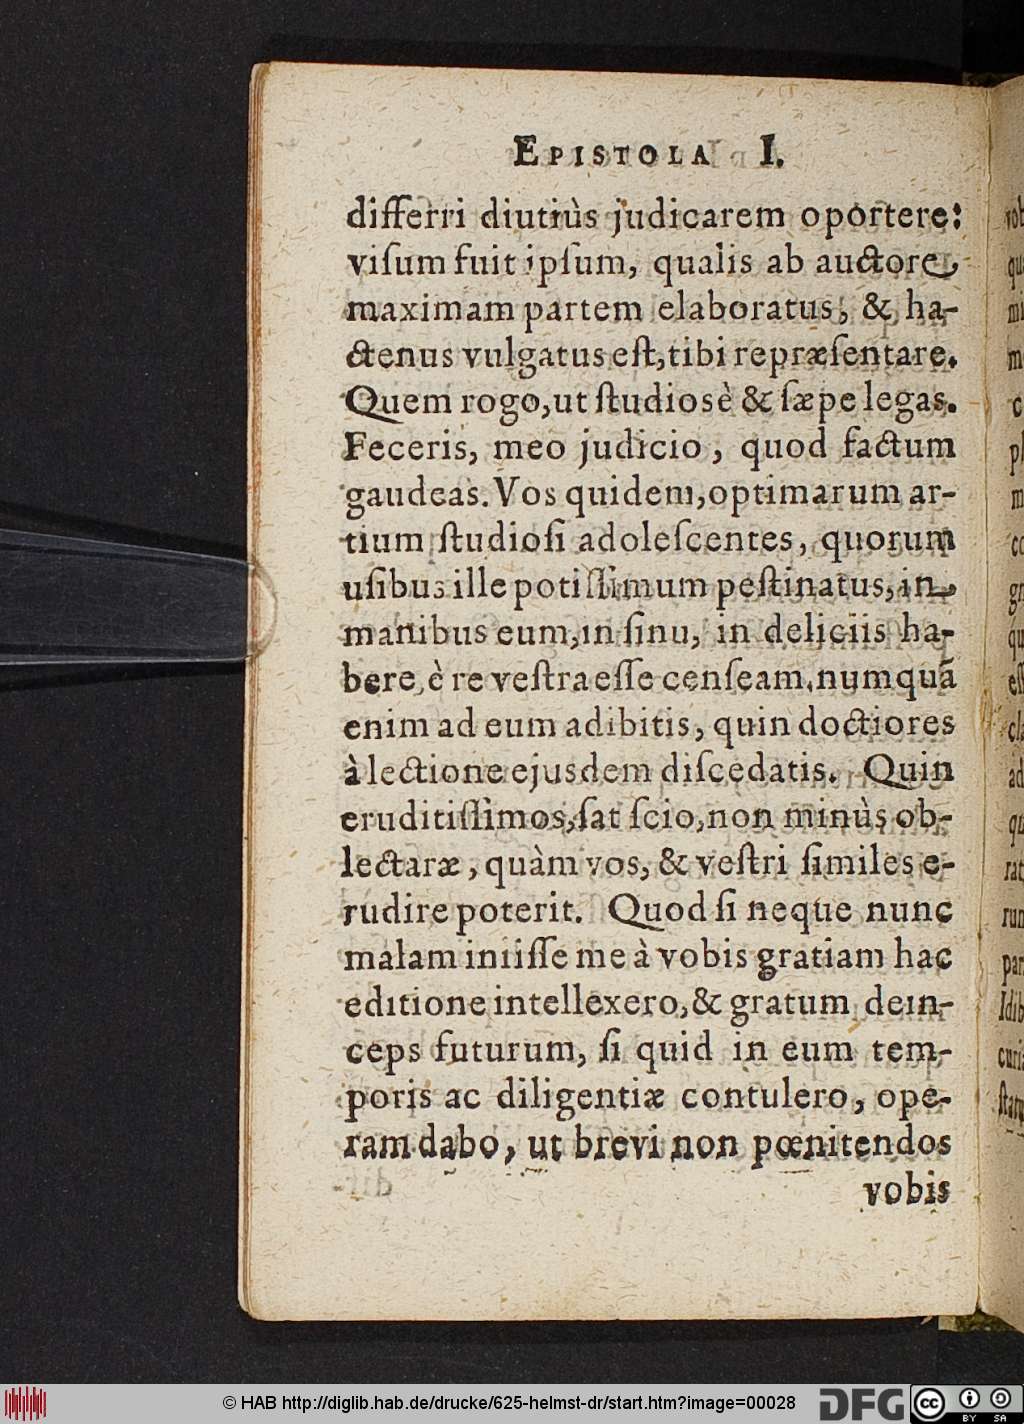 EPISTOLA I.
differri diutiùs judicarem oportere:
viſum fuit ipſum, qualis ab auctore,
maximam partem elaboratus, & ha-
ctenus vulgatus eſt, tibi repræſentare.
Quem rogo, ut ſtudiosè & ſæpe legas.
Feceris, meo judicio, quod factum
gaudeas. Vos quidem, optimarum ar-
tium ſtudioſi adoleſcentes, quorum
uſibus ille potiſſimum peſtinatus, in
manibus eum, in ſinu, in deliciis ha-
bere, è re veſtra eſſe cenſeam, numquã
enim ad eum adibitis, quin doctiores
à lectione ejusdem diſcedatis. Quin
eruditiſſimos, ſat ſcio, non minùs ob-
lectaræ, quàm vos, & veſtri ſimiles e-
rudire poterit. Quod ſi neque nunc
malam iniiſſe me à vobis gratiam hac
editione intellexero, & gratum dein-
ceps futurum, ſi quid in eum tem-
poris ac diligentiæ contulero, ope-
ram dabo, ut brevi non pœnitendos
vobis
© HAB http://diglib.hab.de/drucke/625-helmst-dr/start.htm?image=00028
DFG
cc BY SA